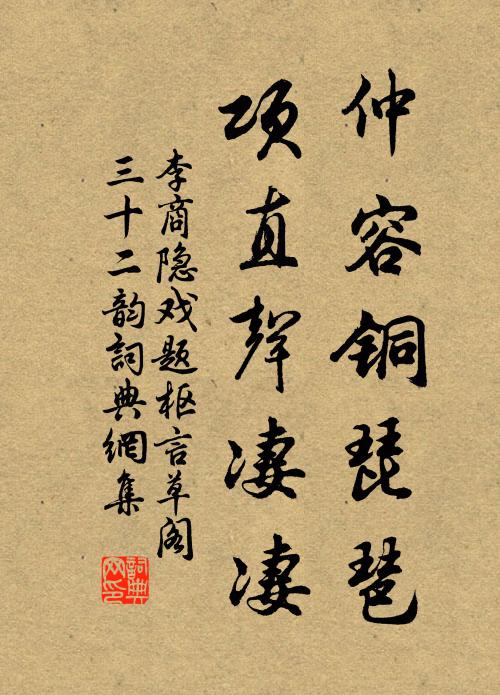 仲容铜琵琶
项直声凄凄
李商隐戏题枢言草阁
三十二韵詞典網集
詞典网印